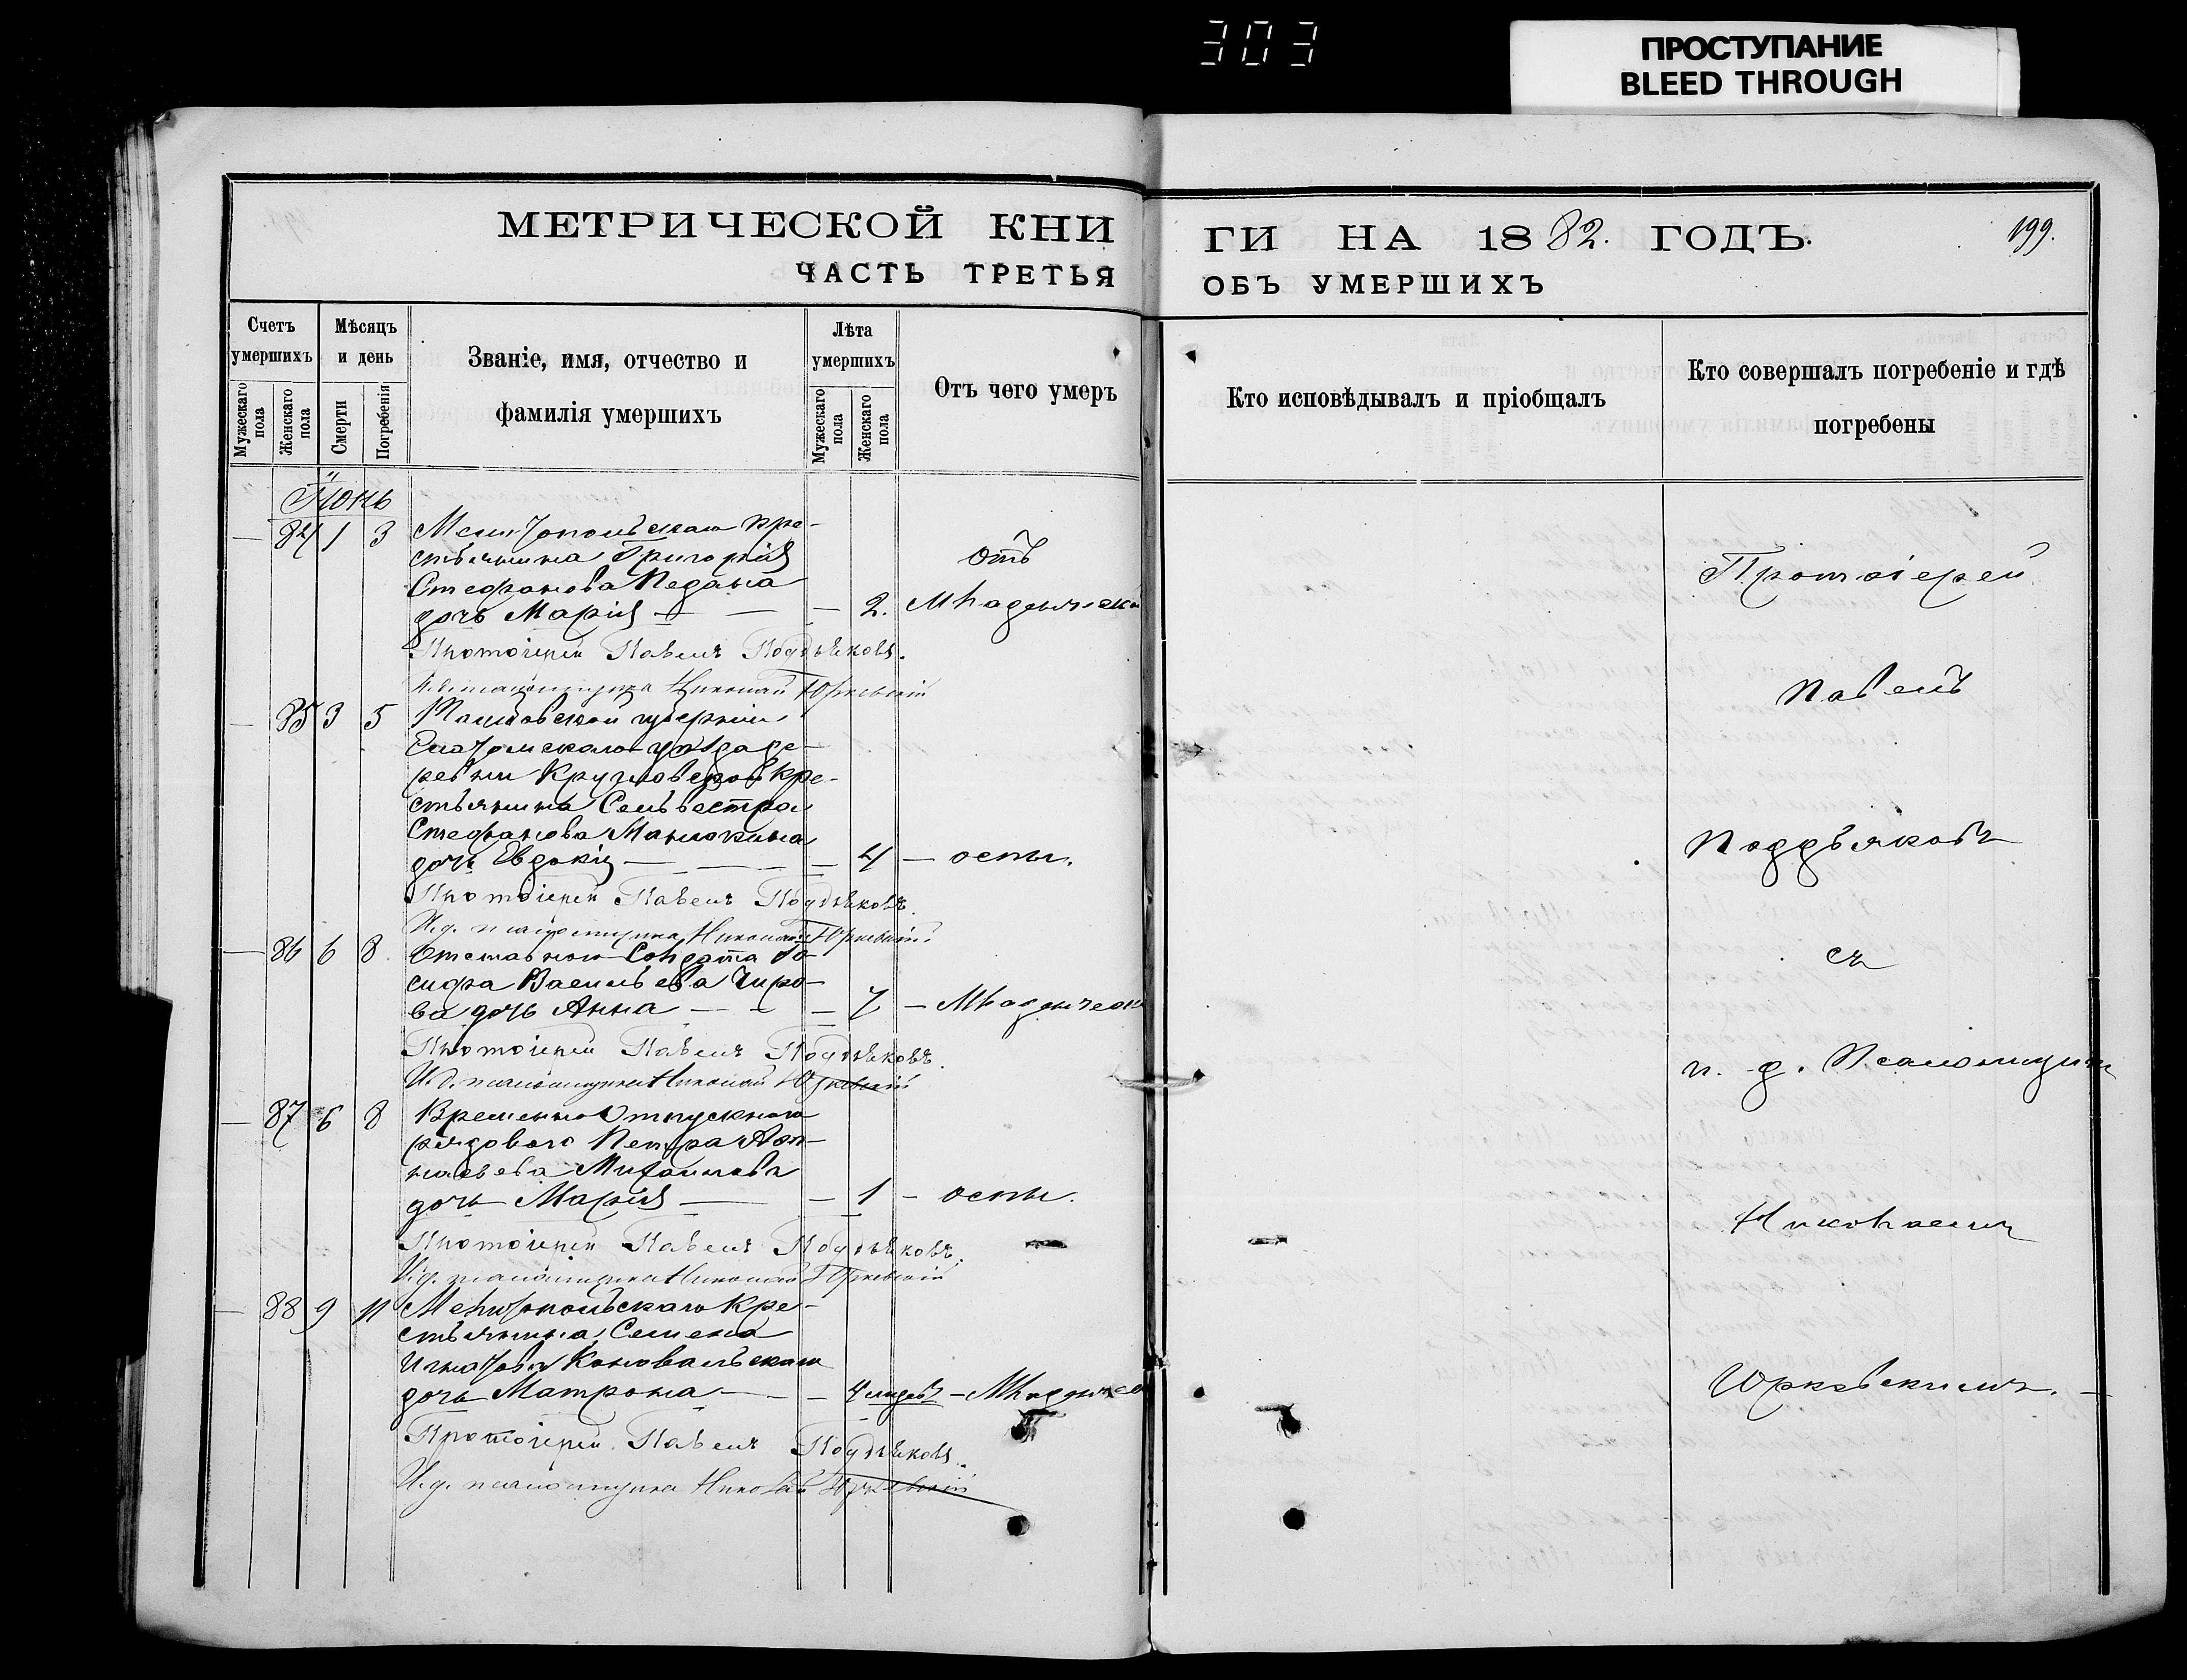 303
ПРОСТУПАНИЕ
BLEED THROUGH
МЕТРИЧЕСКОЙ КНИ
ГИ НА 1882. ГОДЪ.
199.
ЧАСТЬ ТРЕТЬЯ
ОБЪ УМЕРШИХЪ
Счетъ умершихъ
Мужескаго пола
Женскаго пола
Мѣсяцъ и день
Смерти
Погребенія
Званіе, имя, отчество и
фамилія умершихъ
Лѣта умершихъ
Мужескаго пола
Женскаго пола
Отъ чего умеръ
Кто исповѣдывалъ и пріобщалъ
Кто совершалъ погребеніе и гдѣ
погребены
Іюнь
— 84 1 3 Мелитопольскаго кре-
стьянина Григорія
Отъ
Стефанова Педана
дочь Марія — — — 2. Младенческой
Протоіерей Павелъ Поддьяковъ.
И. д. псаломщика Николай Юрковскій
— 85 3 5 Тамбовской губерніи
Елатомскаго уѣзда де-
ревни кре-
стьянина Сельвестра
Стефанова Манюхина
дочь Евдокія — — — 4 — оспы.
Протоіерей Павелъ Поддьяковъ.
И. д. псаломщика Николай Юрковскій
— 86 6 8 Отставнаго Солдата Іо-
сифа Васильева Чиро-
ва дочь Анна — — — 7 — Младенческ
Протоіерей Павелъ Поддьяковъ.
И. д. псаломщика Николай Юрковскій
— 87 6 8 Временно Отпускнаго
рядового Петра
Михаилова
дочь Марія — — 1 — оспы.
Протоіерей Павелъ Поддьяковъ.
И. д. псаломщика Николай Юрковскій
— 88 9 11 Мелитопольскаго Кре-
стьянина Семена
Игнатова Коновальскаго
дочь Матрона — — — 4 — Младенческо
Протоіерей Павелъ Поддьяковъ.
И. д. псаломщика Николай Юрковскій
Протоіерей
Павелъ
Поддьяковъ
съ
и. д. Псаломщика
Николаемъ
Юрковскимъ. —